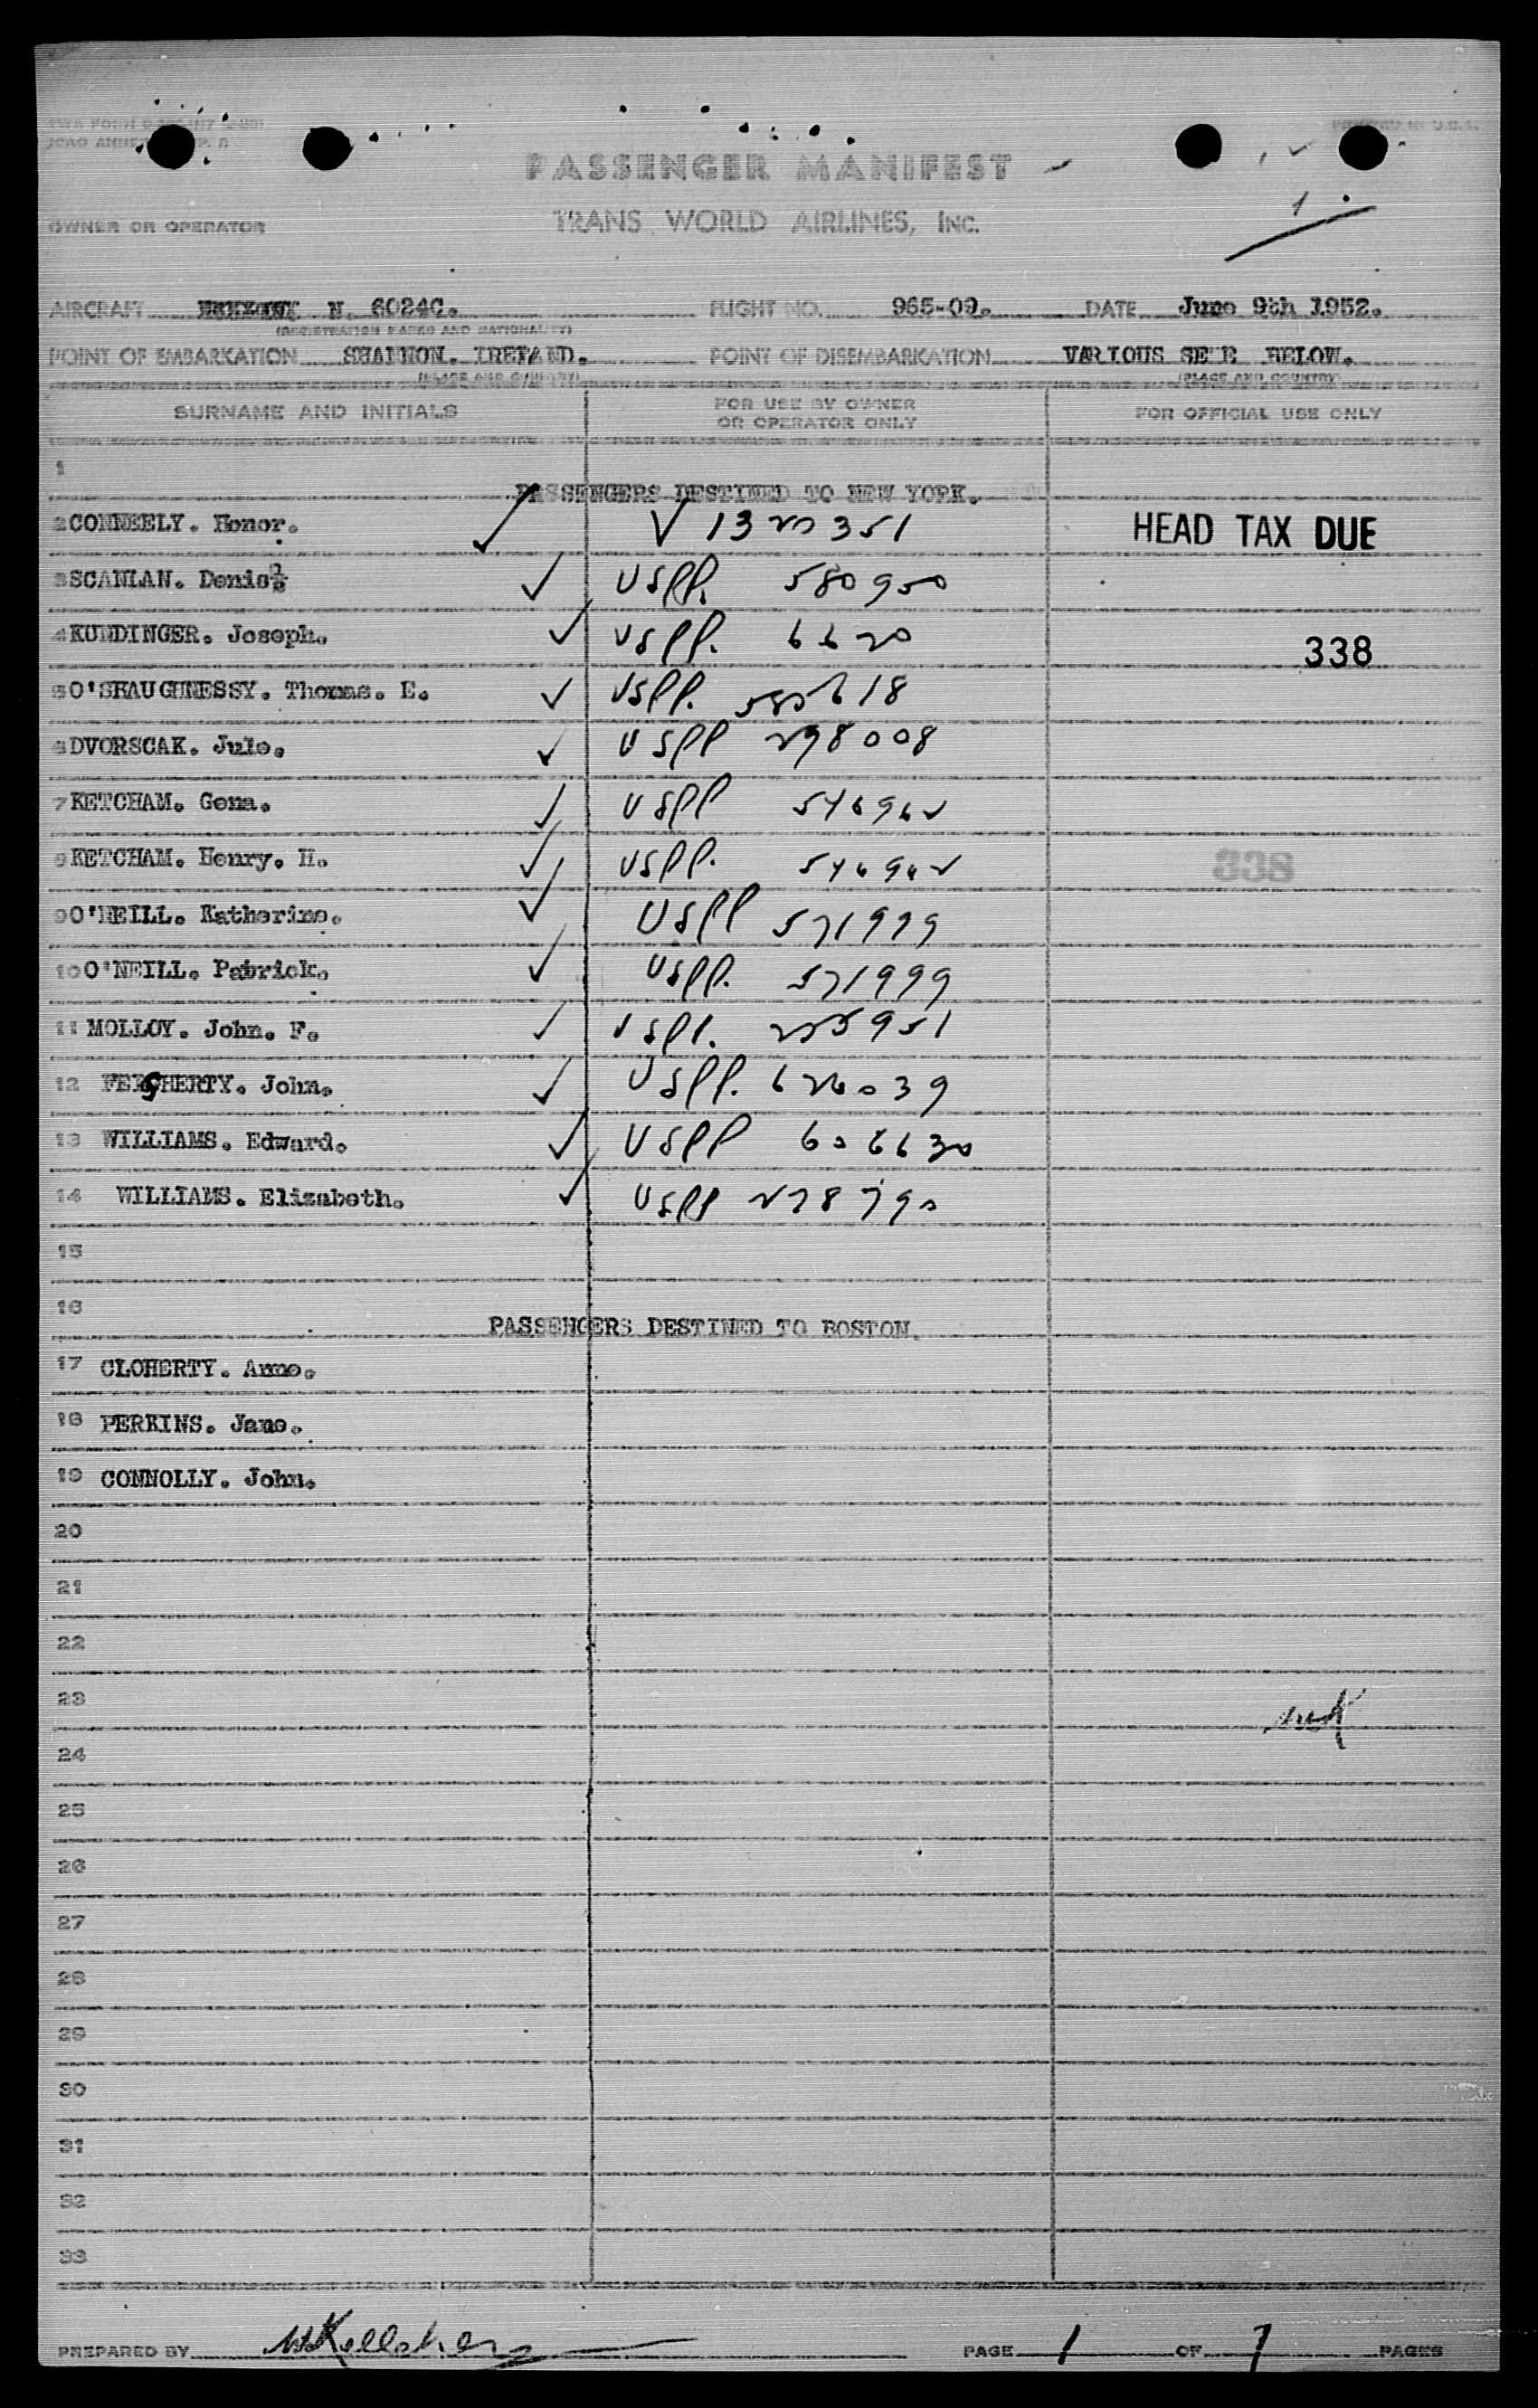 PRINTED IN U.S.A.
PASSENGER MANIFEST
OWNER OR OPERATOR TRANS WORLD AIRLINES, INC.
AIRCRAFT N. 6024C. FLIGHT NO. 965-09. DATE June 9th 1952.
(REGISTRATION MARKS AND NATIONALITY)
POINT OF EMBARKATION SHANNON. IRELAND. POINT OF DISEMBARKATION VARIOUS SE'E BELOW.
(PLACE AND COUNTRY) (PLACE AND COUNTRY)
SURNAME AND INITIALS FOR USE BY OWNER OR OPERATOR ONLY FOR OFFICIAL USE ONLY
1
PASSENGERS DESTINED TO NEW YORK.
2 CONNEELY. Honor. ✓ HEAD TAX DUE
3 SCANLAN. Denis ✓ USPP. 580950
4 KUNDINGER. Joseph. ✓ USPP. 6620 338
5 O'SHAUGHNESSY. Thomas. E. ✓ USPP.
6 DVORSCAK. Jule. ✓ USPP 298008
7 KETCHAM. Gena. ✓ USPP 546962
8 KETCHAM. Henry. H. ✓ USPP. 546962 338
9 O'NEILL. Katherine. ✓ USPP 571999
10 O'NEILL. Patrick. ✓ USPP. 571999
11 MOLLOY. John. F. ✓ 255951
12 FEGHERTY. John. ✓ USPP. 626039
13 WILLIAMS. Edward. ✓ USPP 606630
14 WILLIAMS. Elizabeth. ✓ USPP 278790
15
16
PASSENGERS DESTINED TO BOSTON.
17 CLOHERTY. Anne.
18 PERKINS. Jane.
19 CONNOLLY. John.
20
21
22
23
24
25
26
27
28
29
30
31
32
33
PREPARED BY PAGE 1 OF 7 PAGES